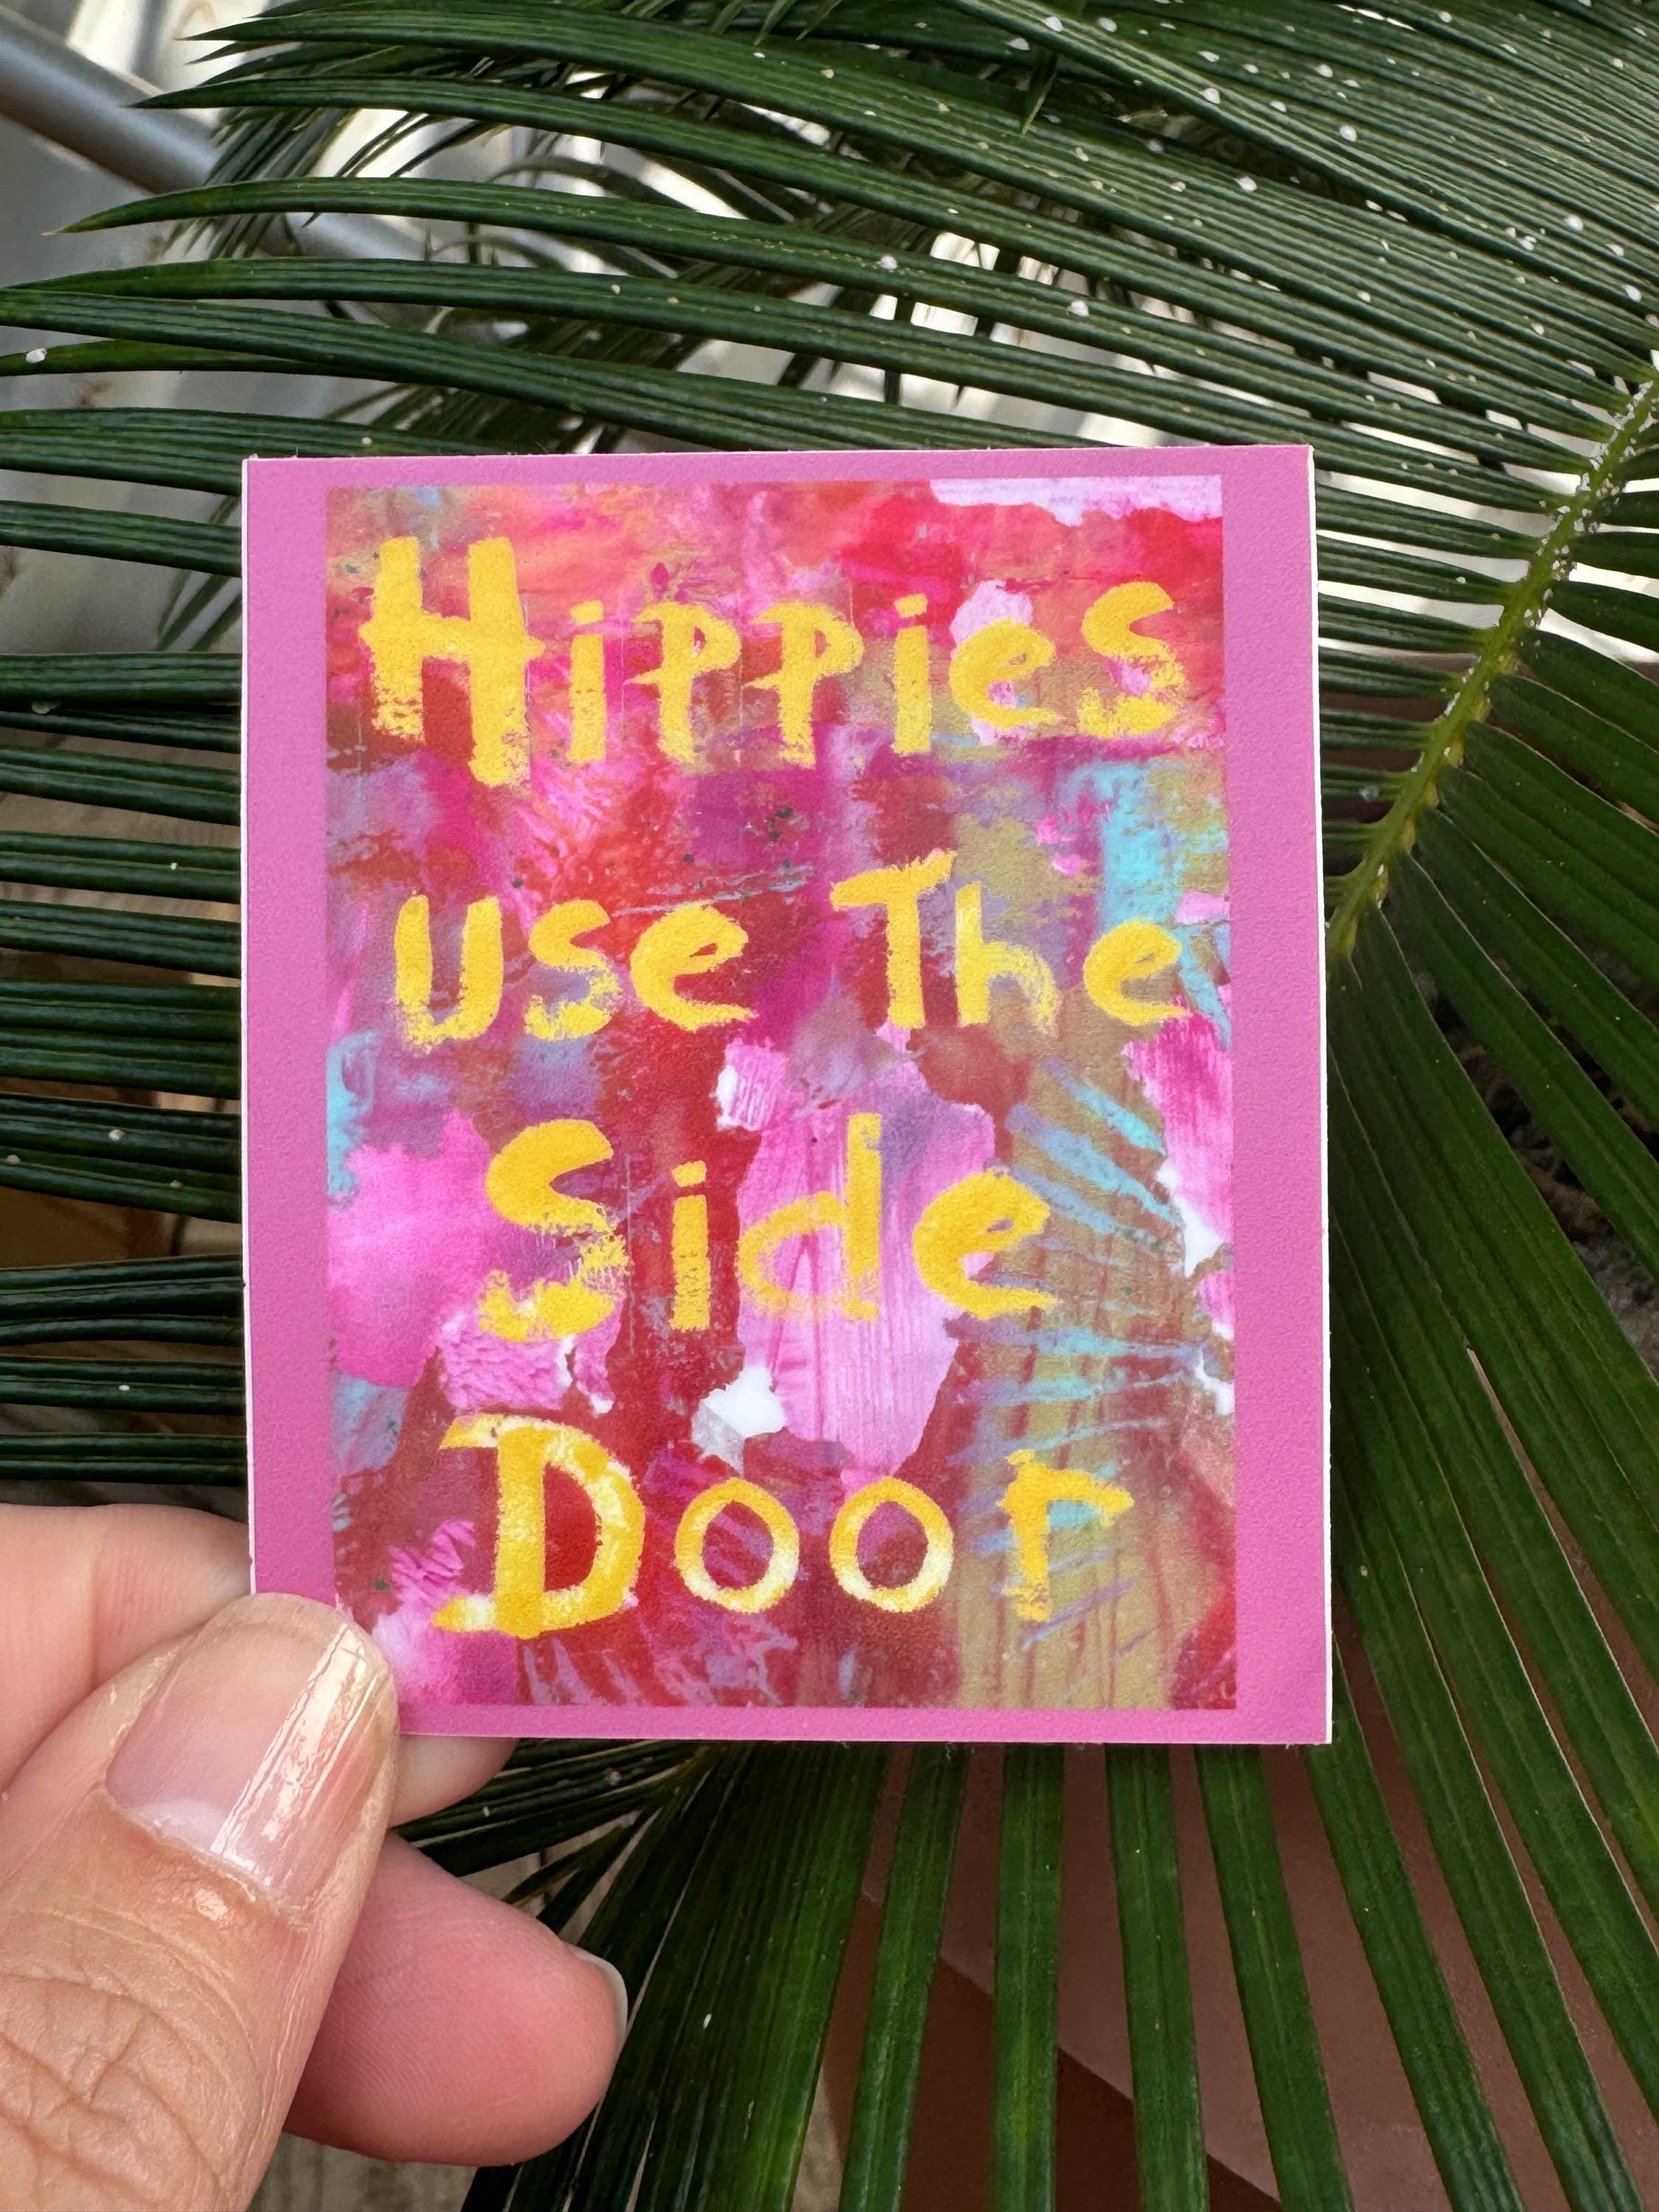 Hippies
use The
Side
Door